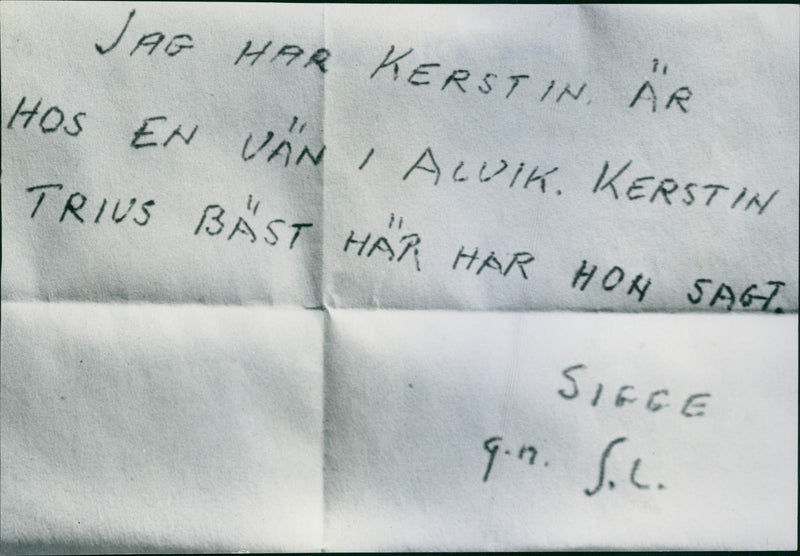 JAG HAR KERSTIN. ÄR
HOS EN VÄN I ALVIK. KERSTIN
TRIVS BÄST HÄR HAR HON SAGT.
SIGGE
g.n. S.L.